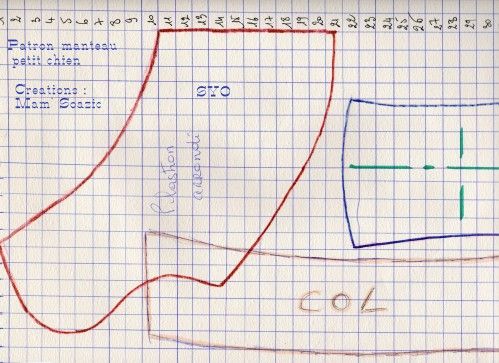 1 2 3 4 5 6 7 8 9 10 11 12 13 14 15 16 17 18 19 20 21 22 23 24 25 26 27 28 29 30
Patron manteau
petit chien
Creations :
Mam Soazic
SYO
arrondi
COL